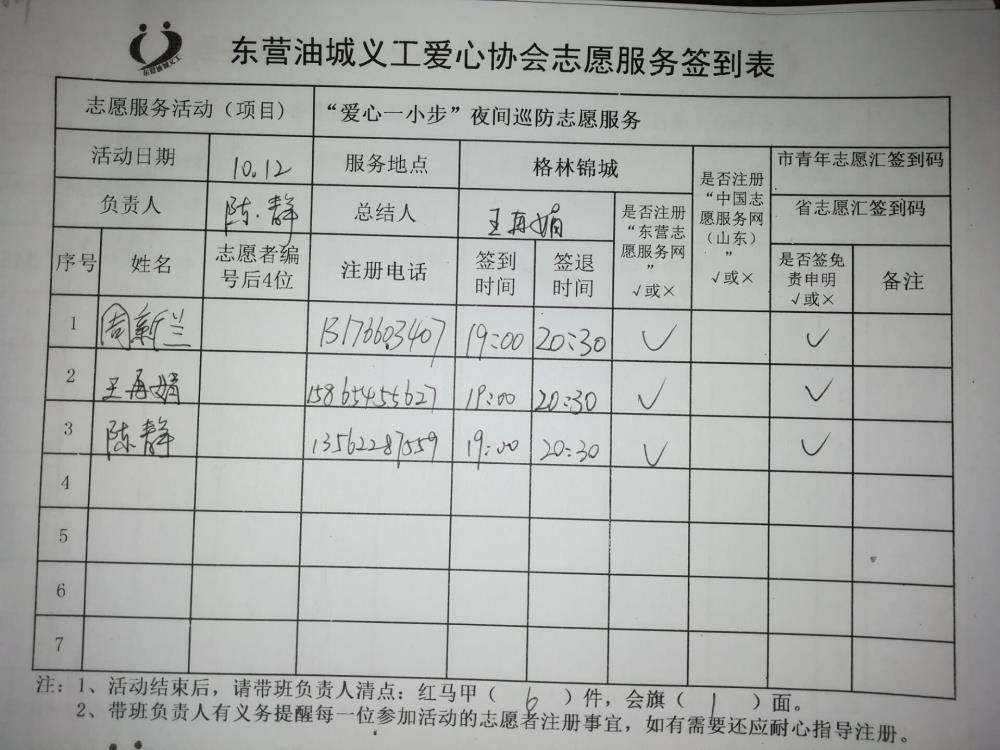 东营油城义工
东营油城义工爱心协会志愿服务签到表
志愿服务活动（项目） “爱心一小步”夜间巡防志愿服务
活动日期 10.12 服务地点 格林锦城 是否注册“中国志愿服务网（山东）”√或× 市青年志愿汇签到码
负责人 陈静 总结人 王再娟 是否注册“东营志愿服务网”√或× 省志愿汇签到码
序号 姓名 志愿者编号后4位 注册电话 签到时间 签退时间 是否签免责申明√或× 备注
1 周新兰 13176603407 19:00 20:30 √ √
2 王再娟 15865455627 19:00 20:30 √ √
3 陈静 13562287559 19:00 20:30 √ √
4
5
6
7
注：1、活动结束后，请带班负责人清点：红马甲（ 6 ）件，会旗（ 1 ）面。
2、带班负责人有义务提醒每一位参加活动的志愿者注册事宜，如有需要还应耐心指导注册。